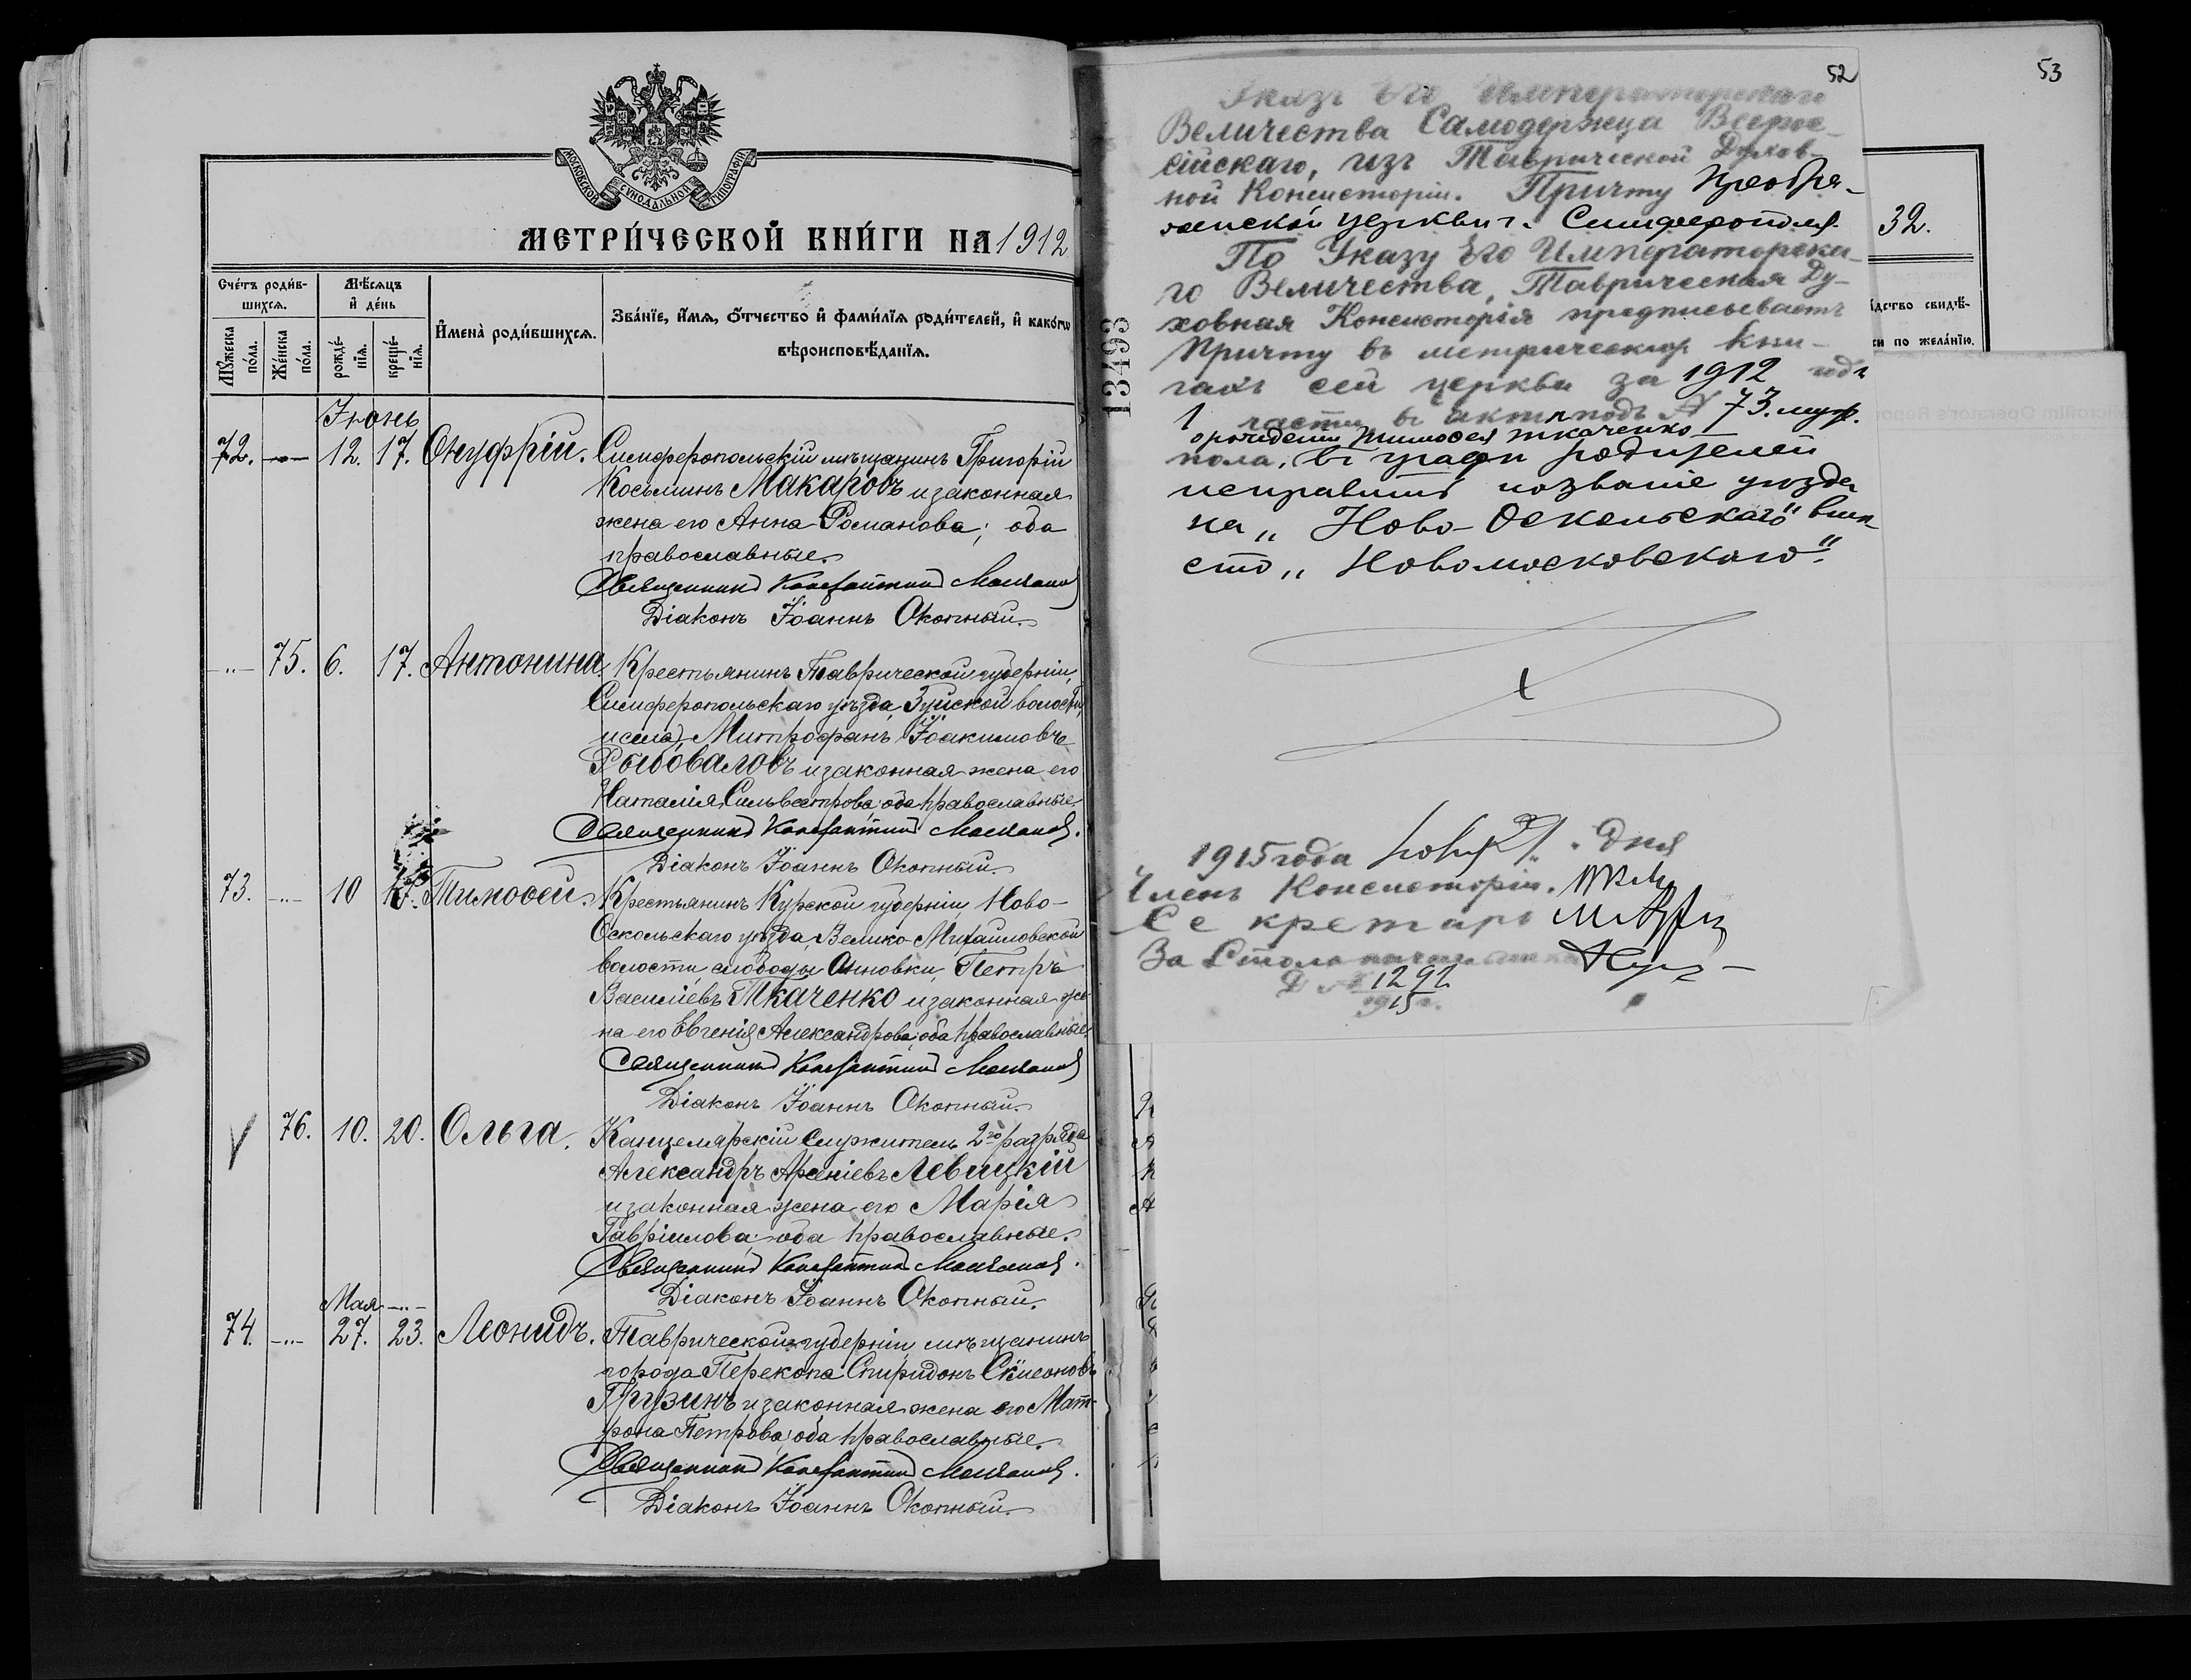 МОСКОВСКОЙ СѴНОДАЛЬНОЙ ТИПОГРАФІИ
МЕТРИ́ЧЕСКОЙ КНИ́ГИ НА 1912
Сче́тъ роди́в-
шихсѧ.
Мѣ́сѧцъ
и҆ де́нь
Мꙋ́жеска
по́ла.
Же́нска
по́ла.
рожде́-
нїѧ.
креще́-
нїѧ.
И҆мена̀ роди́вшихсѧ.
Зва́нїе, и҆́мѧ, ѻ҆́тчество и҆ фами́лїѧ роди́телей, и҆ како́гѡ
вѣроисповѣ́данїѧ.
Іюнь
72. -..- 12. 17. Онуфрій. Симферопольскій мѣщанинъ Григорій
Косьминъ Макаровъ и законная
жена его Анна Романова; оба
православные.
Священникъ Константинъ
Діаконъ Іоаннъ Окопный.
-..- 75. 6. 17. Антонина. Крестьянинъ Таврической губерніи,
Симферопольскаго уѣзда, Зуйской волости,
и села, Митрофанъ Іоакимовъ
Рыбоваловъ и законная жена его
Наталія Сильвестрова; оба православные.
Священникъ Константинъ
Діаконъ Іоаннъ Окопный.
73. -..- 10 17. Тимоѳей. Крестьянинъ Курской губерніи, Ново-
Оскольскаго уѣзда, Велико-Михайловской
волости, слободы Анновки, Петръ
Василіевъ Ткаченко и законная же-
на его Евгенія Александрова; оба православные.
Священникъ Константинъ
Діаконъ Іоаннъ Окопный.
76. 10. 20. Ольга. Канцелярскій служитель 2го разряда
Александръ Арсеніевъ Левицкій
и законная жена его Марія
Гавріилова; оба православные.
Священникъ Константинъ
Діаконъ Іоаннъ Окопный.
Мая -..-
74. -..- 27. 23. Леонидъ. Таврической губерніи, мѣщанинъ
города Перекопа Спиридонъ Симеоновъ
Грузинъ и законная жена его Мат-
рона Петрова; оба православные.
Священникъ Константинъ
Діаконъ Іоаннъ Окопный.
52
Указъ Его Императорскаго
Величества Самодержца Всерос-
сійскаго, изъ Таврической Духов-
ной Консисторіи. Причту Преобра-
женской церкви г. Симферополя.
По Указу Его Императорска-
го Величества, Таврическая Ду-
ховная Консисторія предписываетъ
Причту въ метрическихъ кни-
гахъ сей церкви за 1912 годъ
1 части, въ актѣ подъ № 73. муж.
о рожденіи Тимоѳея Ткаченко
пола, въ графѣ родителей
исправить названіе уѣзда
на „Ново-Оскольскаго" вмѣ-
сто „Новомосковскаго".
1915 года 21 дня
Членъ Консисторіи.
Секретарь
За Столоначальника
Д № 1292
1915 г.
13493
53
32.
дство свидѣ-
си по жела́нїю.